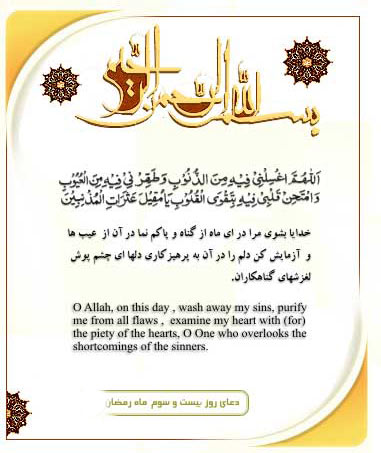 بسم الله الرحمن الرحیم
اَللّهُمَّ اغْسِلْنی فیهِ مِنَ الذُّنُوبِ وَ طَهِّرْنی فیهِ مِنَ الْعُیُوبِ
وَ امْتَحِنْ قَلْبی فیهِ بِتَقْوَی الْقُلُوبِ یا مُقیلَ عَثَراتِ الْمُذْنِبینَ
خدایا بشوی مرا در ای ماه از گناه و پاکم نما در آن از عیب ها
و آزمایش کن دلم را در آن به پرهیزکاری دلها ای چشم پوش
لغزشهای گناهکاران.
O Allah, on this day , wash away my sins, purify
me from all flaws , examine my heart with (for)
the piety of the hearts, O One who overlooks the
shortcomings of the sinners.
دعای روز بیست و سوم ماه رمضان